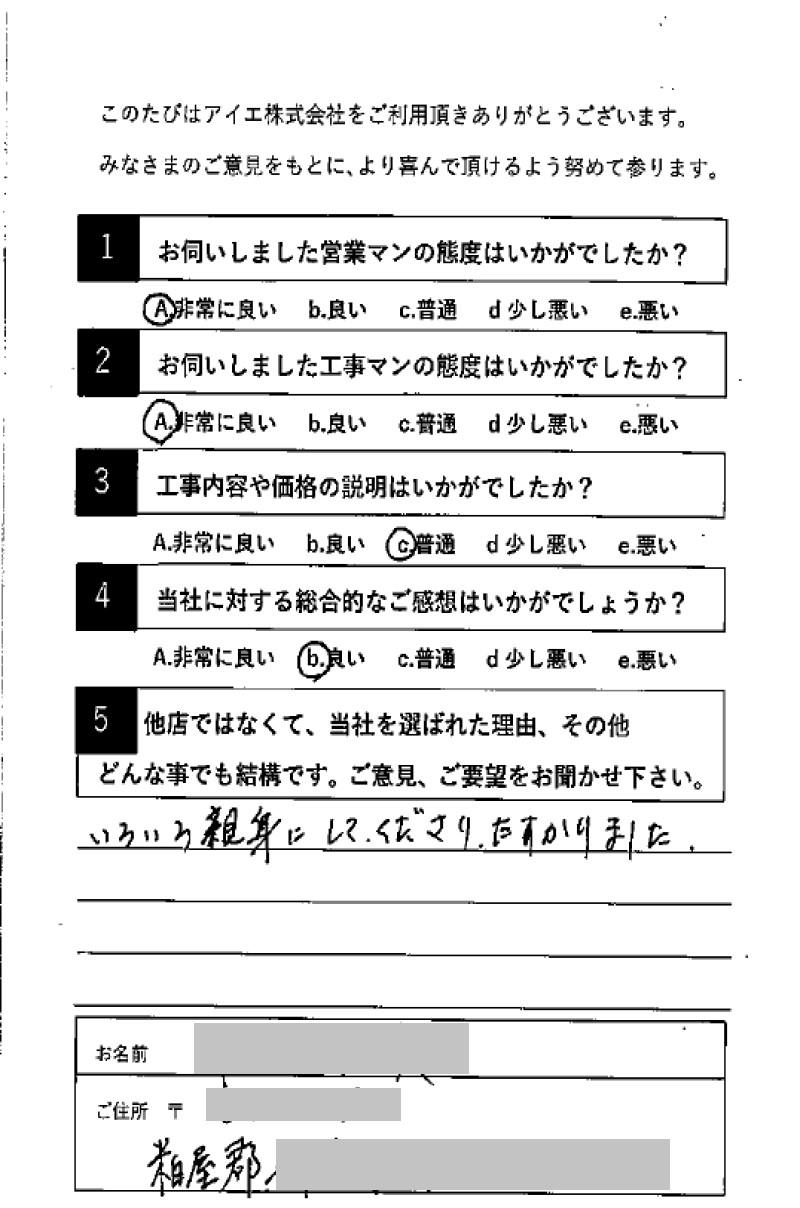 このたびはアイエ株式会社をご利用頂きありがとうございます。
みなさまのご意見をもとに、より喜んで頂けるよう努めて参ります。
1 お伺いしました営業マンの態度はいかがでしたか?
A.非常に良い b.良い c.普通 d 少し悪い e.悪い
2 お伺いしました工事マンの態度はいかがでしたか?
A.非常に良い b.良い c.普通 d 少し悪い e.悪い
3 工事内容や価格の説明はいかがでしたか?
A.非常に良い b.良い c.普通 d 少し悪い e.悪い
4 当社に対する総合的なご感想はいかがでしょうか?
A.非常に良い b.良い c.普通 d 少し悪い e.悪い
5 他店ではなくて、当社を選ばれた理由、その他
どんな事でも結構です。ご意見、ご要望をお聞かせ下さい。
いろいろ親身にしてくださり、たすかりました.
お名前
ご住所 〒
粕屋郡